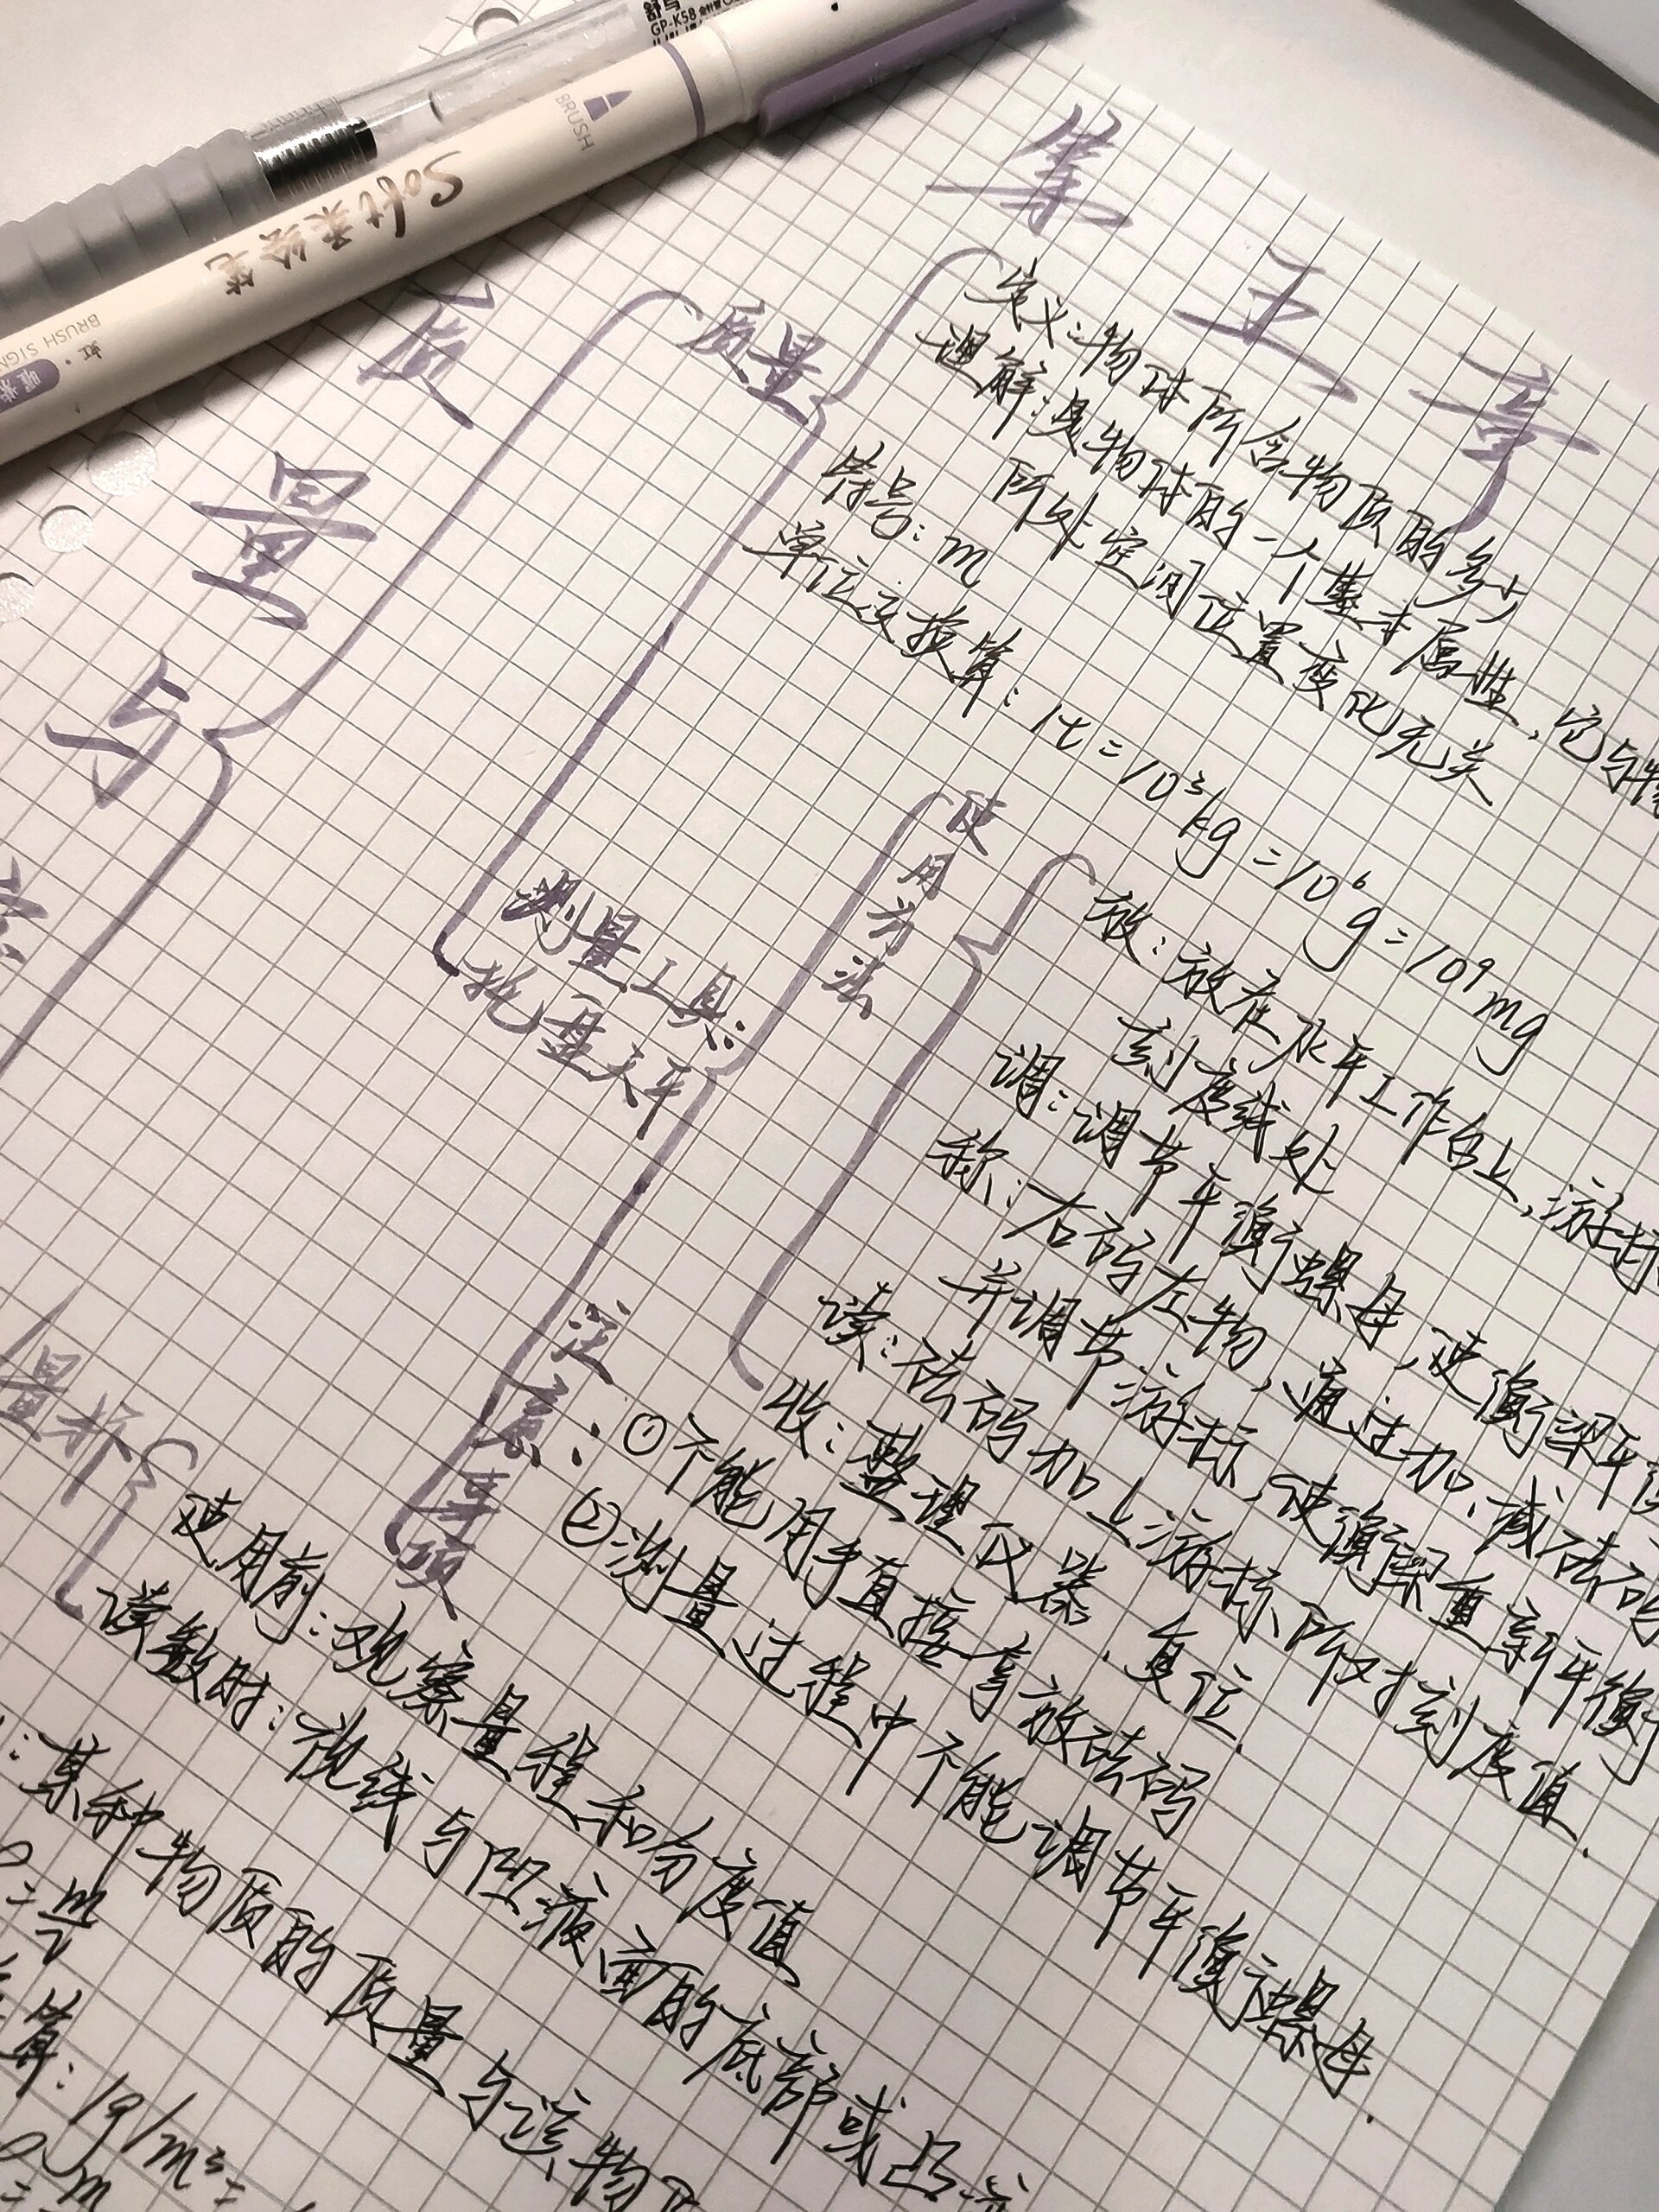 GP-K58
BRUSH
Soft柔绘笔
BRUSH SIGN
第五章
质量与
质量
定义:物体所含物质的多少
理解:是物体的一个基本属性,它与物
所处空间位置变化无关
符号:m
单位及换算:1t=10³kg=10⁶g=10⁹mg
测量工具:
托盘天平
使用方法
放:放在水平工作台上,游标
刻度线处
调:调节平衡螺母,使衡梁平衡
称:右码左物,通过加、减砝码
并调节游标,使衡梁重新平衡
读:砝码加上游标所对刻度值.
收:整理仪器,复位.
注意事项
①不能用手直接拿放砝码
②测量过程中不能调节平衡螺母.
使用前:观察量程和分度值
读数时:视线与凹液面的底部或凸
:某种物质的质量与该物
算:1g/m³=